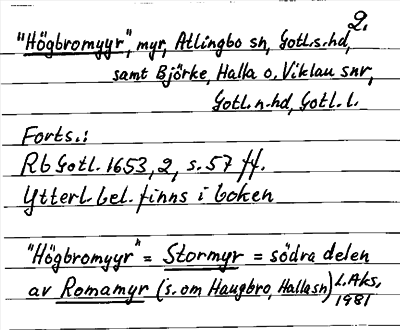 2.
"Högbromyyr", myr, Atlingbo sn, Gotl.s.hd,
samt Björke, Halla o. Viklau snr,
Gotl.n.hd, Gotl. l.
Forts.:
Rb Gotl. 1653, 2, s. 57 ff.
Ytterl. bel. finns i boken
"Högbromyyr" = Stormyr = södra delen
av Romamyr (s. om Haugbro, Halla sn) L. Aks,
1981